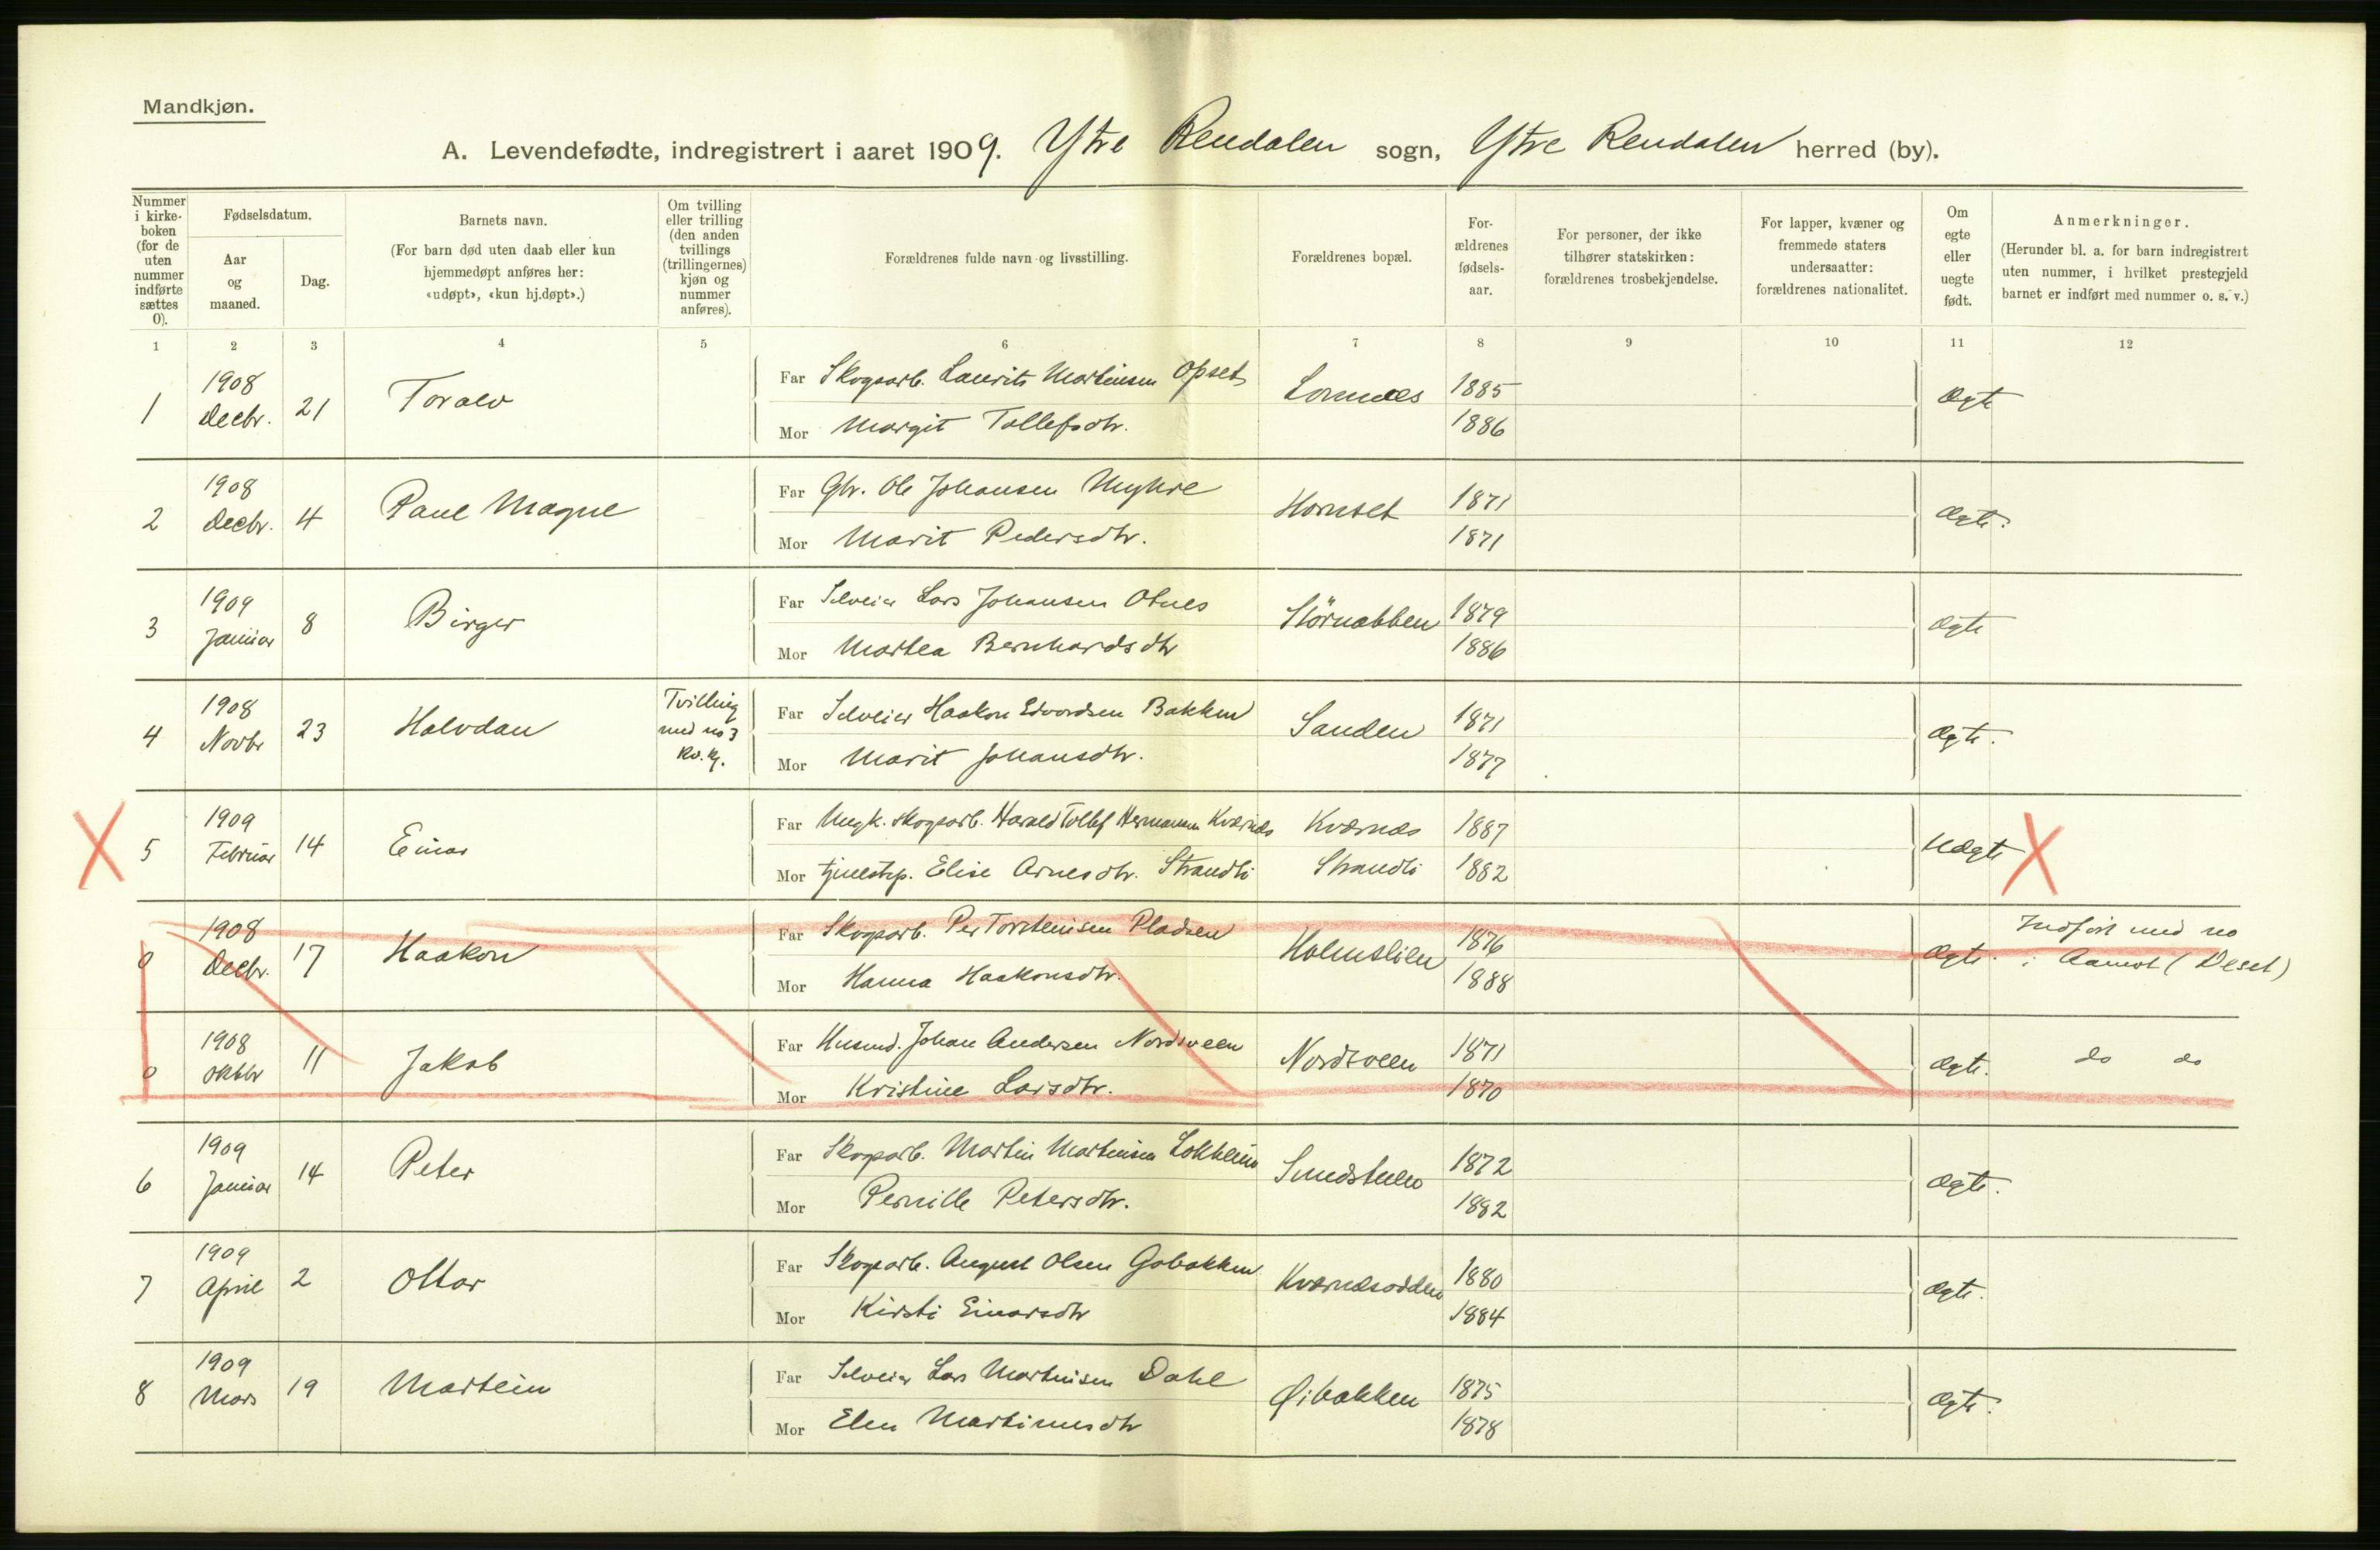 Mandkjøn.
A. Levendefødte, indregistrert i aaret 1909. Ytre Rendalen sogn, Ytre Rendalen herred (by).
Nummer i kirke-boken (for de uten nummer indførte sættes 0).
Fødselsdatum.
Aar og maaned.
Dag.
Barnets navn.
(For barn død uten daab eller kun hjemmedøpt anføres her: «udøpt», «kun hj.døpt».)
Om tvilling eller trilling (den anden tvillings (trillingernes) kjøn og nummer anføres).
Forældrenes fulde navn og livsstilling.
Forældrenes bopæl.
For-ældrenes fødsels-aar.
For personer, der ikke tilhører statskirken: forældrenes trosbekjendelse.
For lapper, kvæner og fremmede staters undersaatter: forældrenes nationalitet.
Om egte eller uegte født.
Anmerkninger.
(Herunder bl. a. for barn indregistrert uten nummer, i hvilket prestegjeld barnet er indført med nummer o. s. v.)
1 2 3 4 5 6 7 8 9 10 11 12
1 1908 Decbr. 21 Toralv Far Skogsarb. Laurits Martinsen Opset Lomnæs 1885 Ægte
Mor Margit Tollefsdtr. 1886
2 1908 Decbr. 4 Paul Magne Far Gbr. Ole Johansen Myhre Hornset 1871 Ægte.
Mor Marit Pedersdtr. 1871
3 1909 Januar 8 Birger Far Selveier Lars Johansen Otnes Störnabben 1879 Ægte
Mor Martea Bernhardsdtr 1886
4 1908 Novbr 23 Halvdan Tvilling med no 3 Kv. Kj. Far Selveier Haakon Edvardsen Bakken Sanden 1871 Ægte.
Mor Marit Johansdtr. 1877
5 1909 Februar 14 Einar Far Ungk. skogsarb. Harald Tollef Hermansen Kværnæs Kværnæs 1887 Uægte
Mor tjenestep. Elise Arnesdtr. Strandli Strandli 1882
0 1908 Decbr. 17 Haakon Far Skogsarb. Per Torsteinsen Pladsen Holmslien 1876 Ægte. Indført med no
Mor Hanna Haakonsdtr. 1888 i Aamot (Deset)
0 1908 Oktbr 11 Jakob Far Husmd. Johan Andersen Nordsveen Nordsveen 1871 Ægte. do do
Mor Kristine Larsdtr. 1870
6 1909 Januar 14 Peter Far Skogsarb. Martin Martinsen Lokheim Sundstuen 1872 Ægte.
Mor Pernille Petersdtr. 1882
7 1909 April 2 Ottar Far Skogsarb. August Olsen Gabakken Kværnæsodden 1880 Ægte.
Mor Kirsti Einarsdtr 1884
8 1909 Mars 19 Martein Far Selveier Lars Martinisen Dahl Øibakken 1875 Ægte.
Mor Elen Martinusdtr 1878